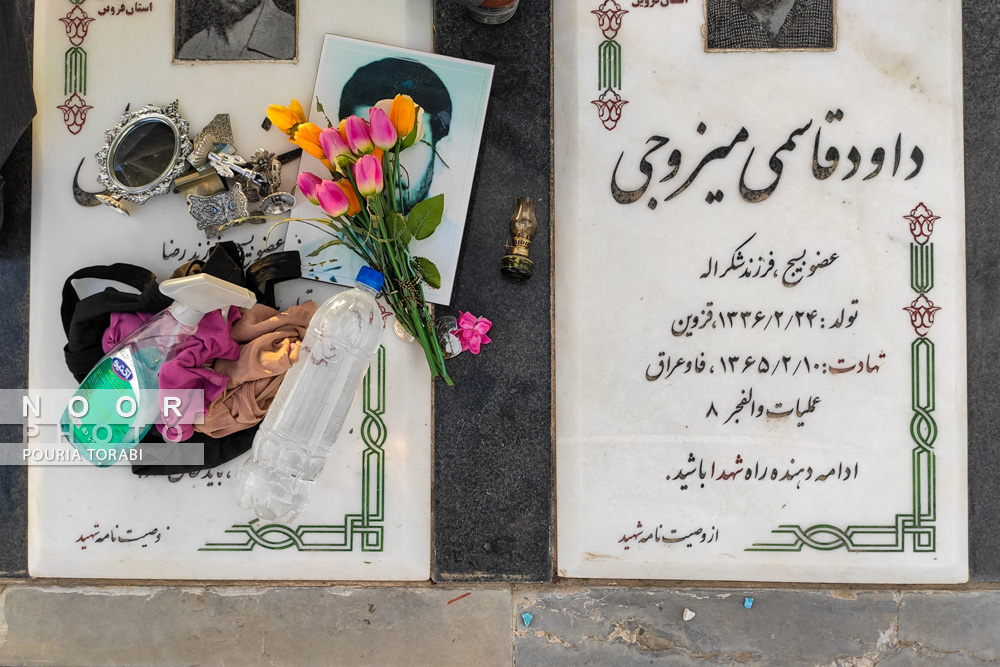 استان قزوین
عضو بسیج، فرزند رضا
وصیت نامه شهید
استان قزوین
داود قاسمی میزوجی
عضو بسیج ، فرزند شکراله
تولد : ۱۳۳۶/۲/۲۴، قزوین
شهادت: ۱۳۶۵/۲/۱۰ ، فاو عراق
عملیات والفجر ۸
ادامه دهنده راه شهدا باشید.
از وصیت نامه شهید
NOOR
PHOTO
POURIA TORABI